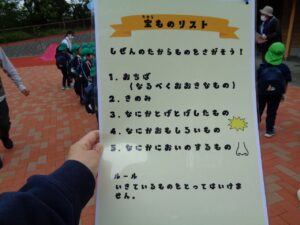 たから
宝ものリスト
しぜんのたからものをさがそう！
1．おちば
（なるべくおおきなもの）
2．きのみ
3．なにかとげとげしたもの
4．なにかおもしろいもの
5．なにかにおいのするもの
ルール
いきているものをとってはいけま
せん。